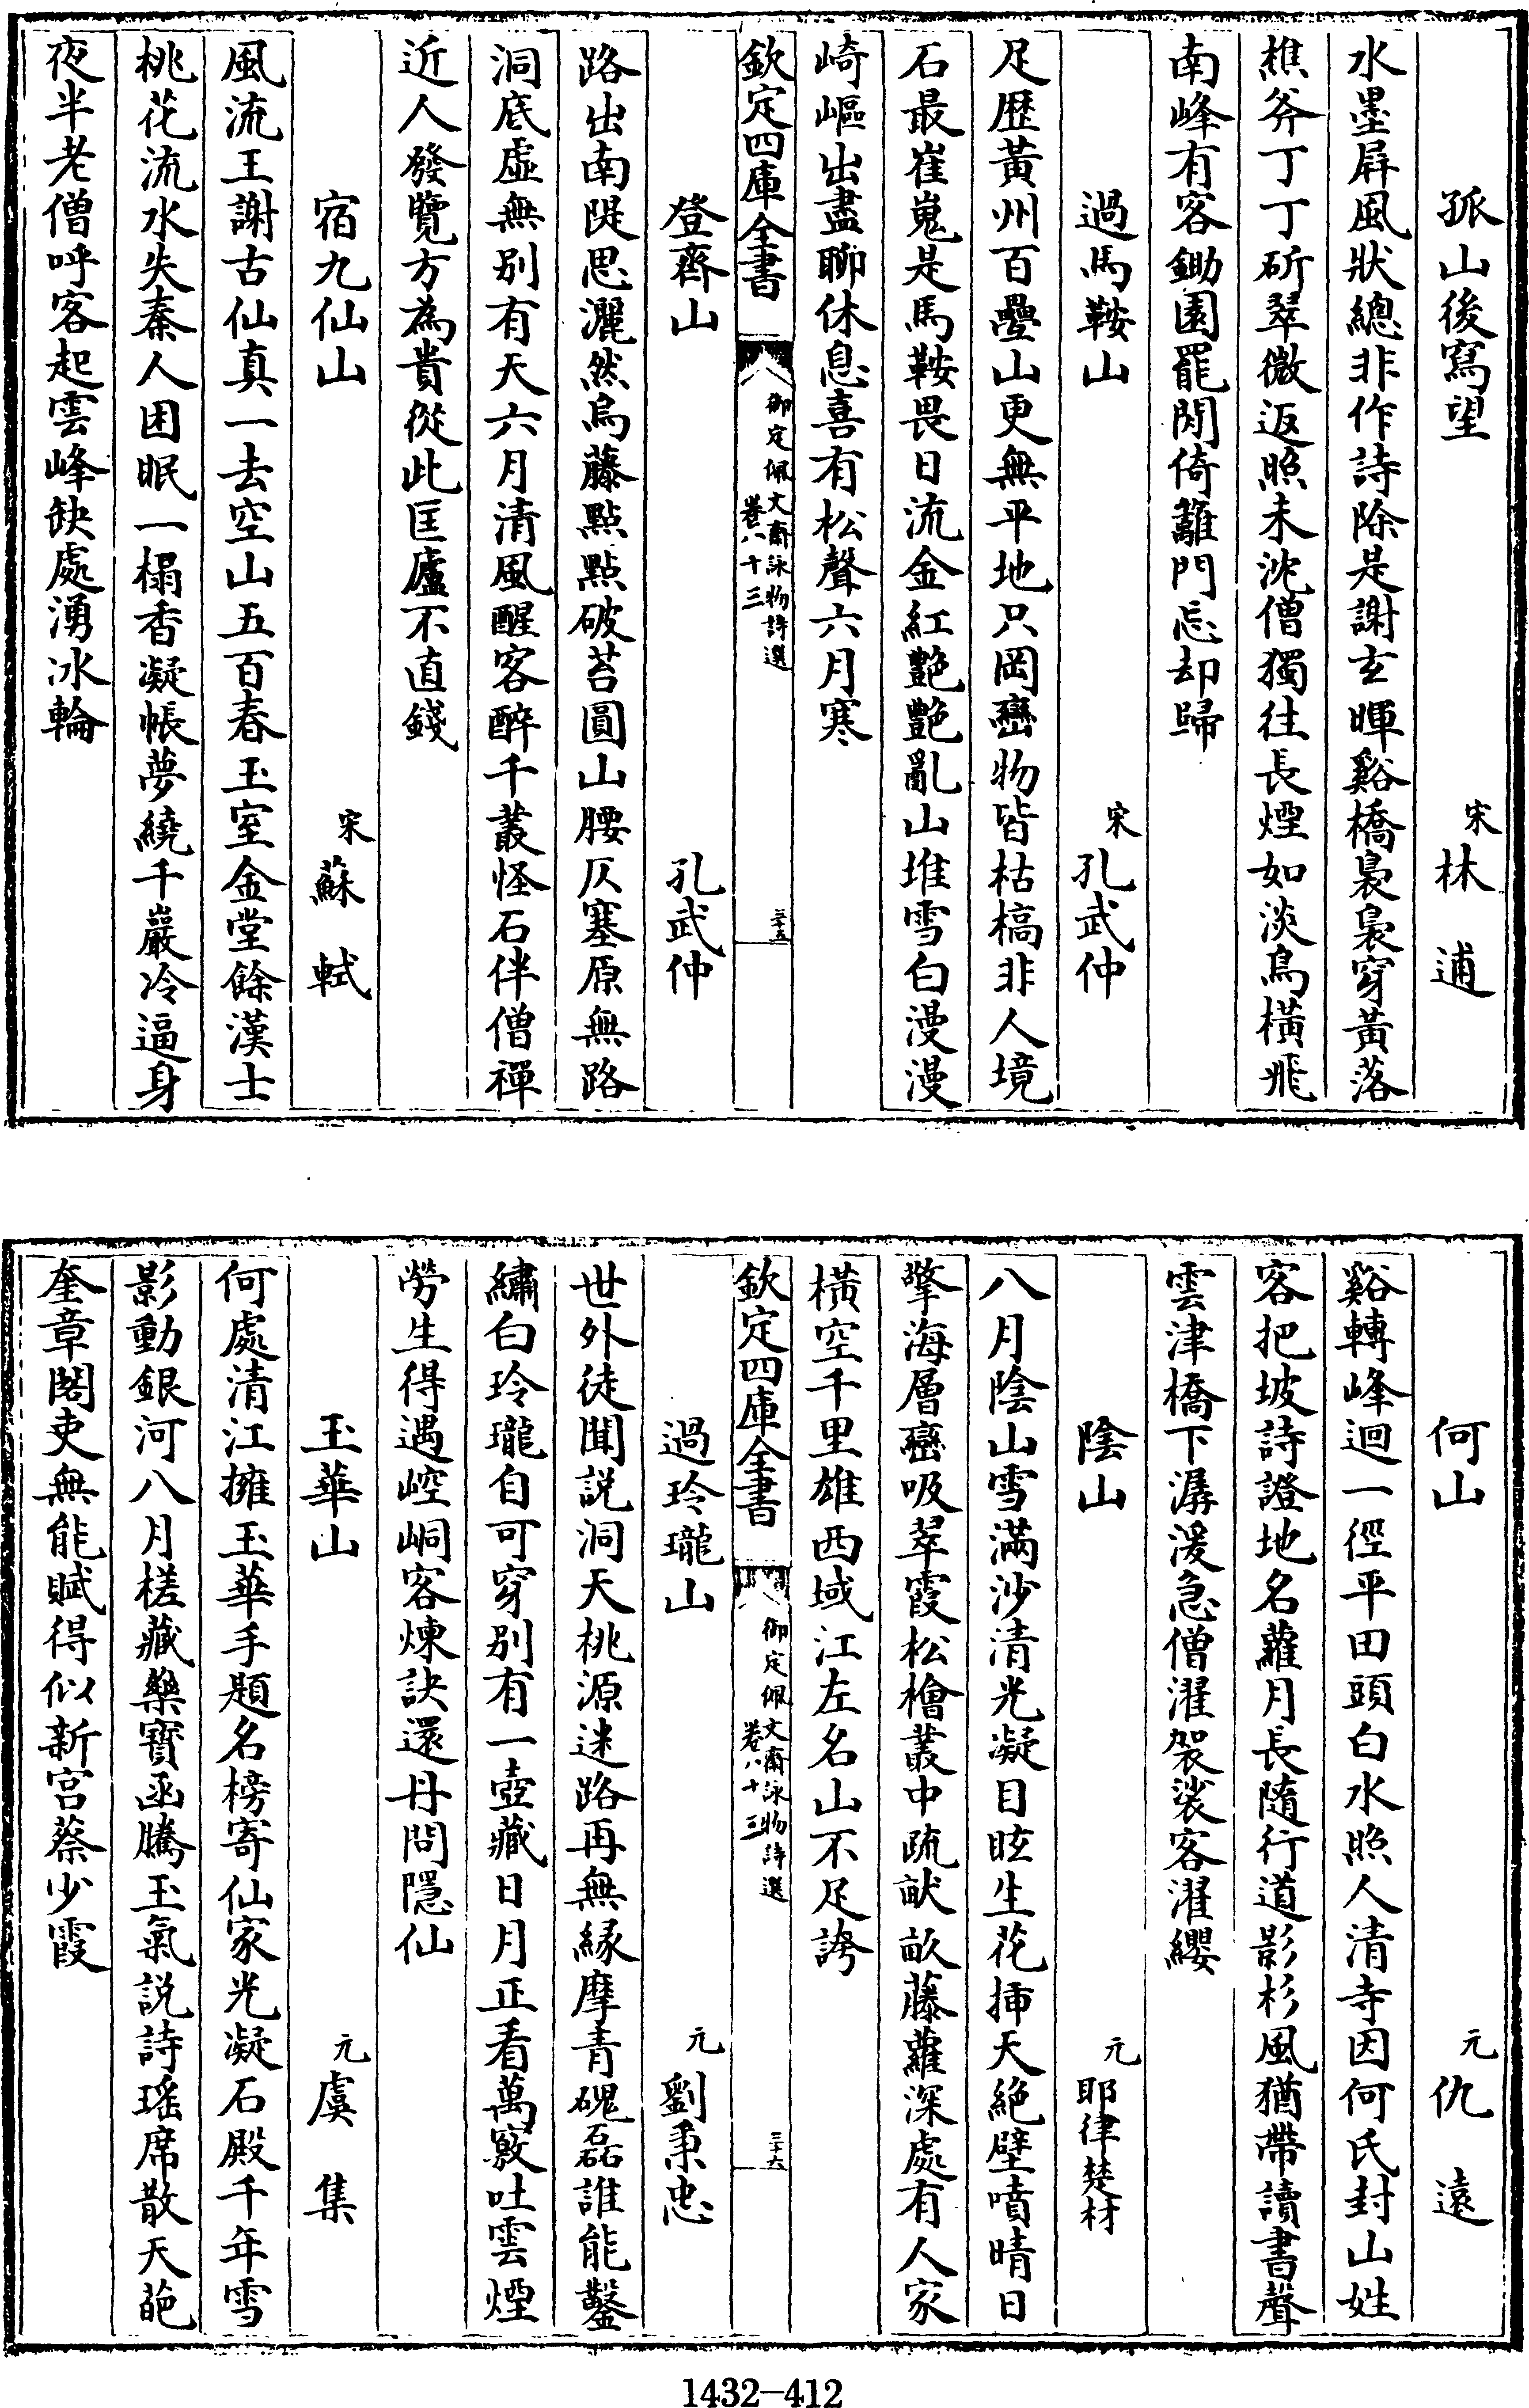 孤山後寫望　宋林逋
水墨屛風狀總非作詩除是謝玄暉谿橋裊裊穿黃落
樵斧丁丁斫翠微返照未沈僧獨往長煙如淡鳥橫飛
南峰有客鋤園罷閒倚籬門忘却歸
過馬鞍山　宋孔武仲
足歷黃州百疊山更無平地只岡巒物皆枯槁非人境
石最崔嵬是馬鞍畏日流金紅艷艷亂山堆雪白漫漫
崎嶇出盡聊休息喜有松聲六月寒
欽定四庫全書　御定佩文齋詠物詩選　卷八十三　三十五
登齊山　孔武仲
路出南隄思灑然烏藤點點破苔圓山腰仄塞原無路
洞底虛無別有天六月清風醒客醉千叢怪石伴僧禪
近人發覽方為貴從此匡廬不直錢
宿九仙山　宋蘇軾
風流王謝古仙真一去空山五百春玉室金堂餘漢士
桃花流水失秦人困眠一榻香凝帳夢繞千巖冷逼身
夜半老僧呼客起雲峰缺處湧冰輪
何山　元仇遠
谿轉峰迴一徑平田頭白水照人清寺因何氏封山姓
客把坡詩證地名蘿月長隨行道影杉風猶帶讀書聲
雲津橋下潺湲急僧濯袈裟客濯纓
陰山　元耶律楚材
八月陰山雪滿沙清光凝目眩生花插天絕壁噴晴日
擎海層巒吸翠霞松檜叢中疏畎畝藤蘿深處有人家
橫空千里雄西域江左名山不足誇
欽定四庫全書　御定佩文齋詠物詩選　卷八十三　三十六
過玲瓏山　元劉秉忠
世外徒聞說洞天桃源迷路再無緣摩青磈磊誰能鑿
繡白玲瓏自可穿別有一壺藏日月正看萬竅吐雲煙
勞生得遇崆峒客煉訣還丹問隱仙
玉華山　元虞集
何處清江擁玉華手題名榜寄仙家光凝石殿千年雪
影動銀河八月槎藏藥寶函騰玉氣說詩瑤席散天葩
奎章閣吏無能賦得似新宮蔡少霞
1432-412